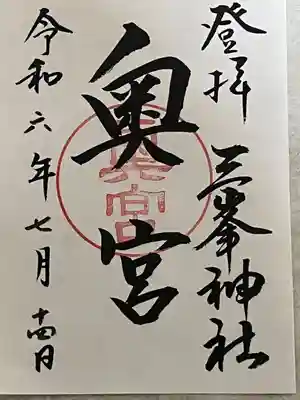 登拝 三峯神社
奥宮
令和六年七月十四日